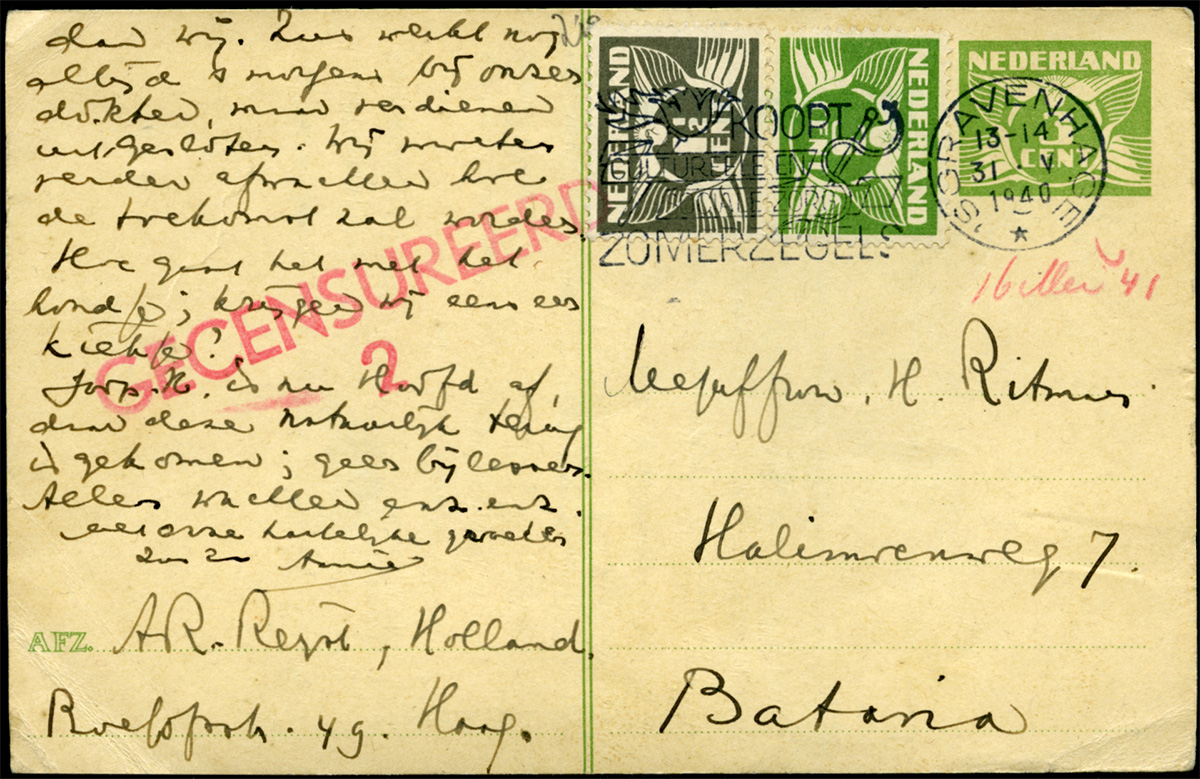 dan wij. Zus werkt nog
altijd 's morgens bij onzen
dokter, maar verdienen
uitgesloten. Wij moeten
verder afwachten hoe
de toekomst zal worden
Hoe gaat het met het
hondje; krijgen wij eens een
kiekje?
is nu Hoofd af,
daar deze natuurlijk terug
is gekomen; geen bijlessen.
Allen wachten enz. enz.
met onze hartelijke groeten
Annie
AFZ. A.R. Regst, Holland.
49. Haag.
GECENSUREERD
2
NEDERLAND
1½ CENT
NEDERLAND
CENT
NEDERLAND
5
CENT
KOOPT
CULTUREELE EN
ZOMERZEGELS
'S GRAVENHAGE
13-14
31 V
1940
16 Mei 41
Mejuffrouw. H. Ritman.
Halimoenweg 7.
Batavia